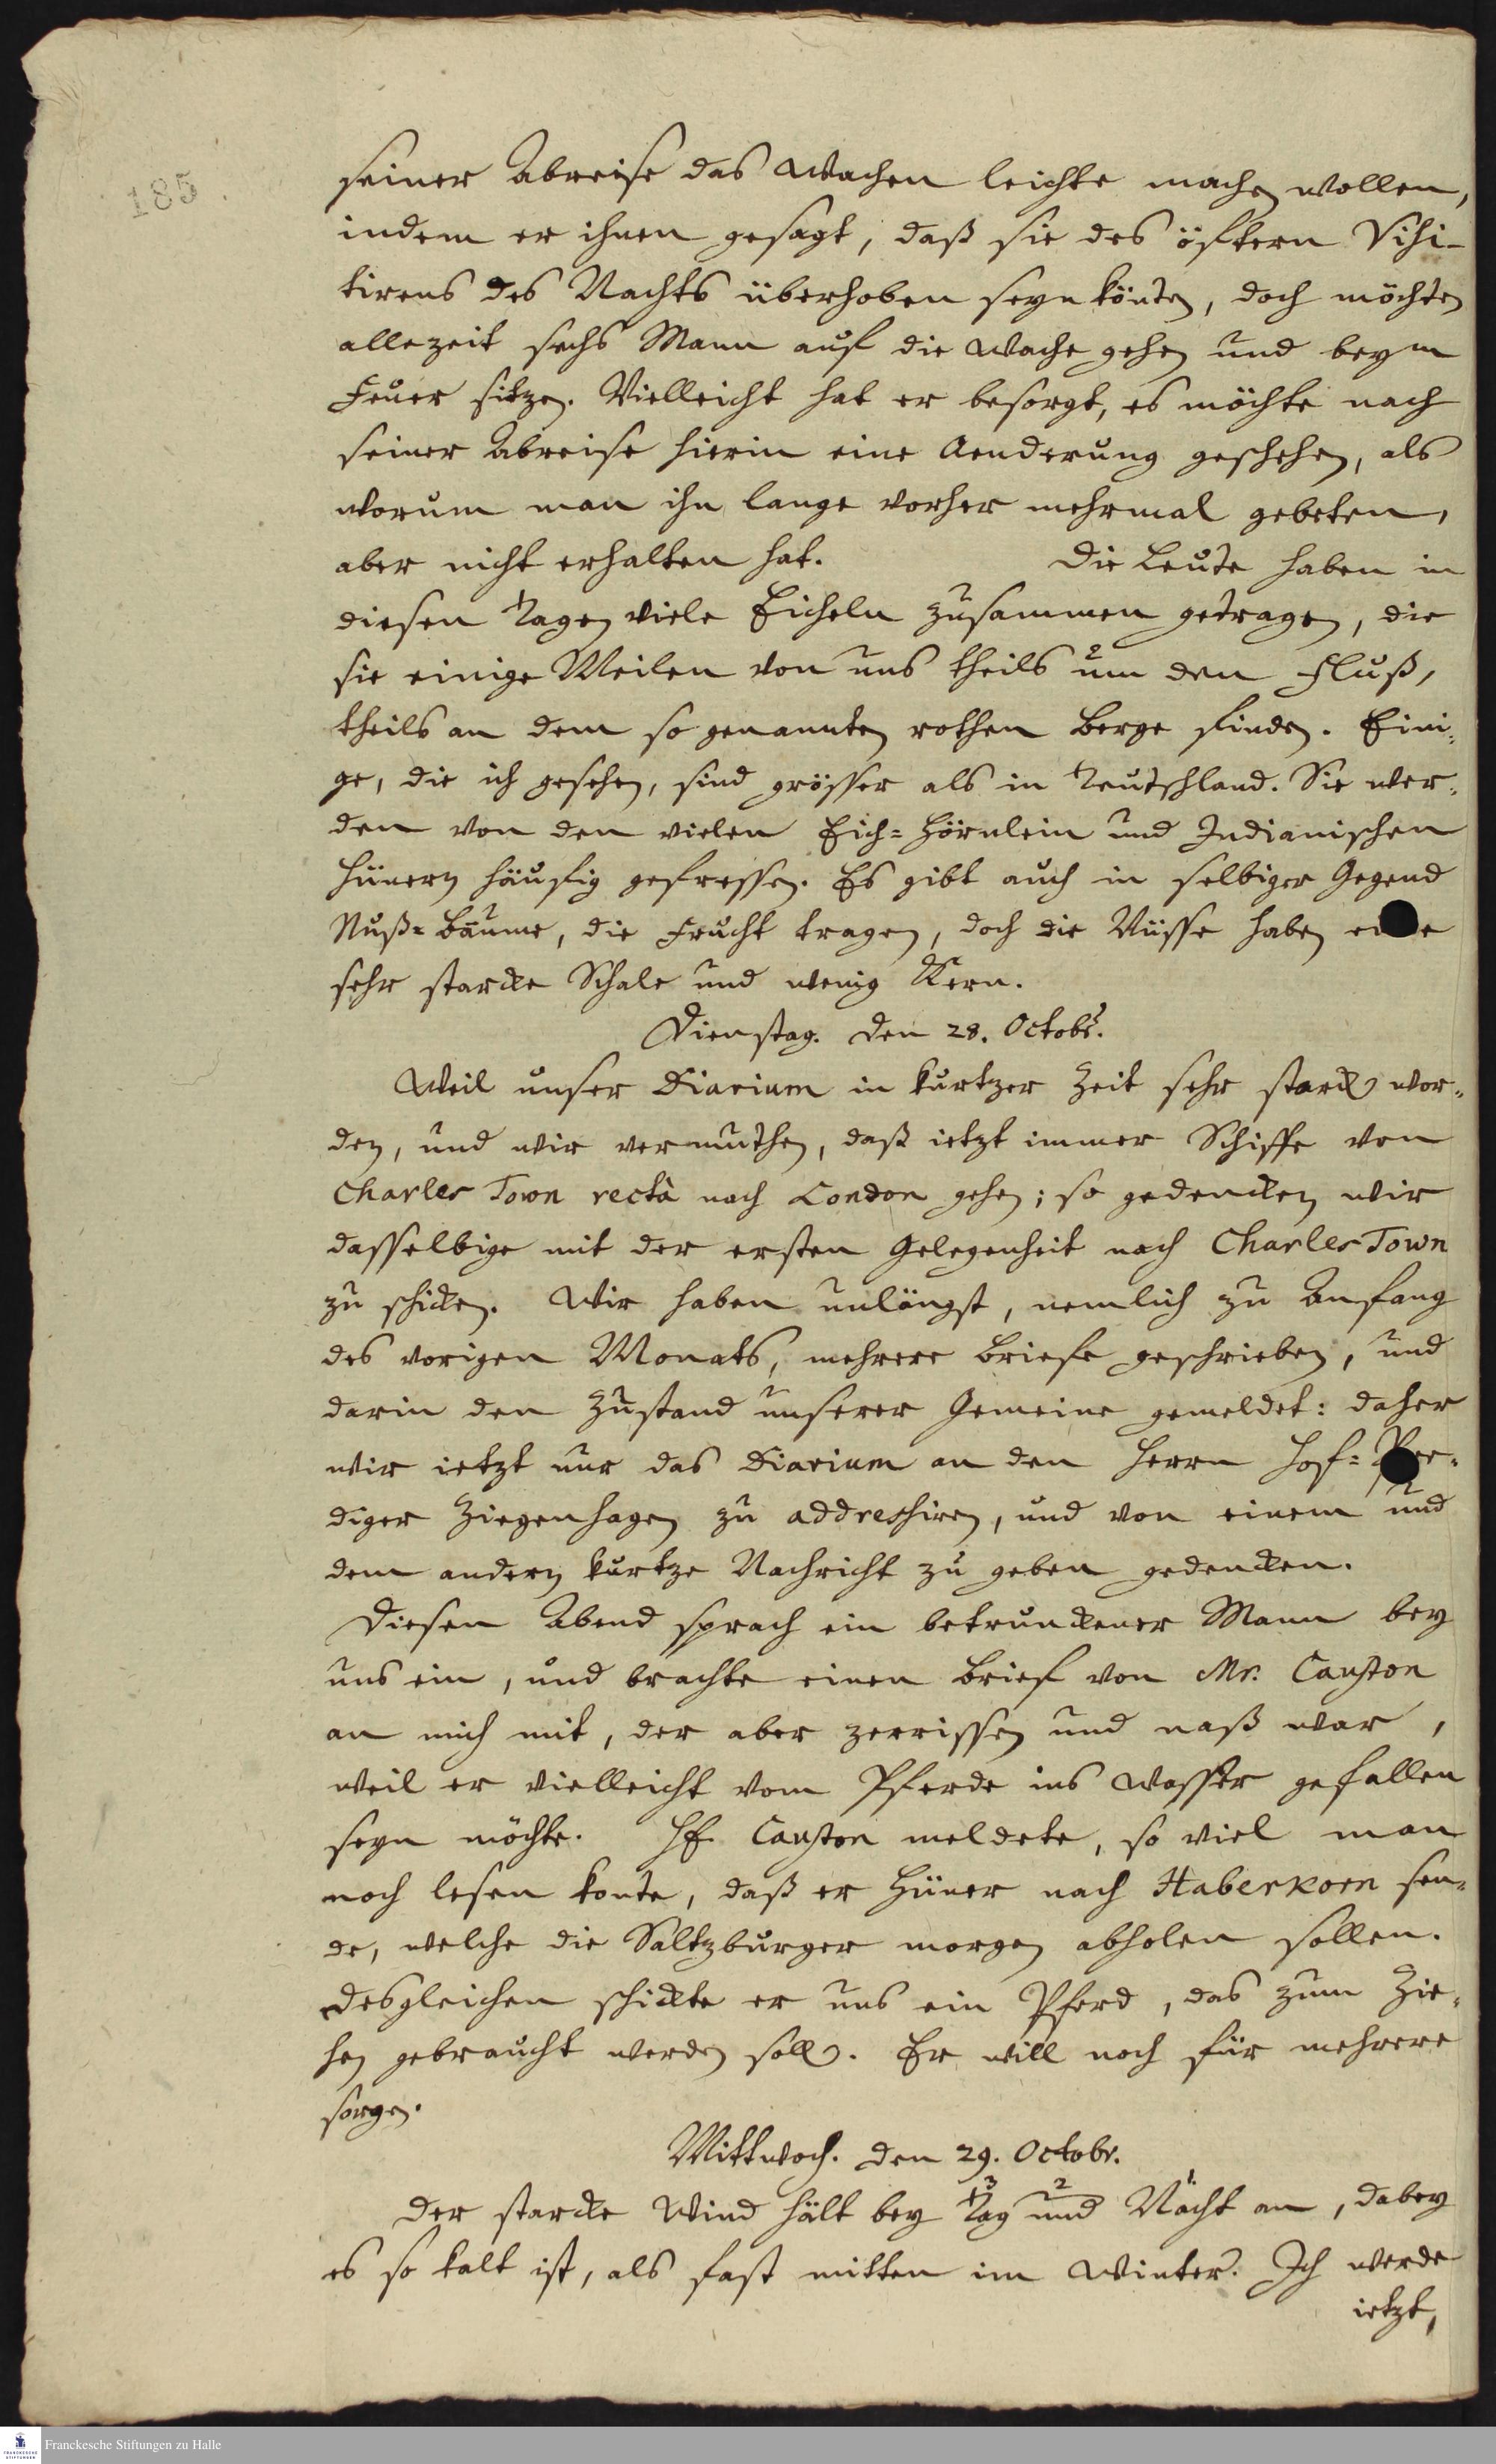 185.
seiner Abreise das Wachen leichte machen wollen,
indem er ihnen gesagt, daß sie des öftern Visi-
tirens des Nachts überhoben seyn könten, doch möchten
allezeit sechs Mann auf die Wache gehen und beym
Feuer sitzen. Vielleicht hat er besorgt, es möchte nach
seiner Abreise hierin eine Aenderung geschehen, als
worum man ihn lange vorher mehrmal gebeten,
aber nicht erhalten hat. Die Leute haben in
diesen Tagen viele Eicheln zusammen getragen, die
sie einige Meilen von uns theils um den Fluß,
theils an dem so genannten rothen Berge finden. Eini-
ge, die ich gesehen, sind grösser als in Teutschland. Sie wer-
den von den vielen Eich-Hörnlein und Indianischen
Hünern häufig gefressen. Es gibt auch in selbiger Gegend
Nuß-Bäume, die Frucht tragen, doch die Nüsse haben eine
sehr starcke Schale und wenig Kern.
Dienstag. den 28. Octobr.
Weil unser Diarium in kurtzer Zeit sehr starck wor-
den, und wir vermuthen, daß ietzt immer Schiffe von
Charles Town rectà nach London gehen; so gedencken wir
dasselbige mit der ersten Gelegenheit nach Charles Town
zu schicken. Wir haben unlängst, nemlich zu Anfang
des vorigen Monats, mehrere Briefe geschrieben, und
darin den Zustand unserer Gemeine gemeldet: daher
wir ietzt nur das Diarium an den Herrn Hof-Pre-
diger Ziegenhagen zu addressiren, und von einem und
dem andern kurtze Nachricht zu geben gedencken.
Diesen Abend sprach ein betrunckener Mann bey
uns ein, und brachte einen Brief von Mr. Causton
an mich mit, der aber zerrissen und naß war,
weil er vielleicht vom Pferde ins Wasser gefallen
seyn möchte. Hr. Causton meldete, so viel man
noch lesen konte, daß er Hüner nach Haberkorn sen-
de, welche die Saltzburger morgen abholen sollen.
Desgleichen schickte er uns ein Pferd, das zum Zie-
hen gebraucht werden soll. Er will noch für mehrere
sorgen.
Mittwoch. den 29. Octobr.
3 2 1
Der starcke Wind hält bey Tag und Nacht an, dabey
es so kalt ist, als fast mitten im Winter. Ich werde
ietzt,
FRANCKESCHE STIFTUNGEN
Franckesche Stiftungen zu Halle